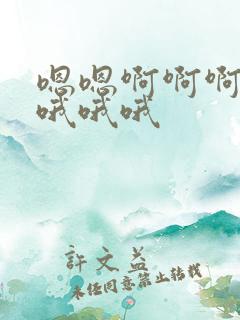 嗯嗯啊啊啊
哦哦哦
許文益
未經同意禁止转载